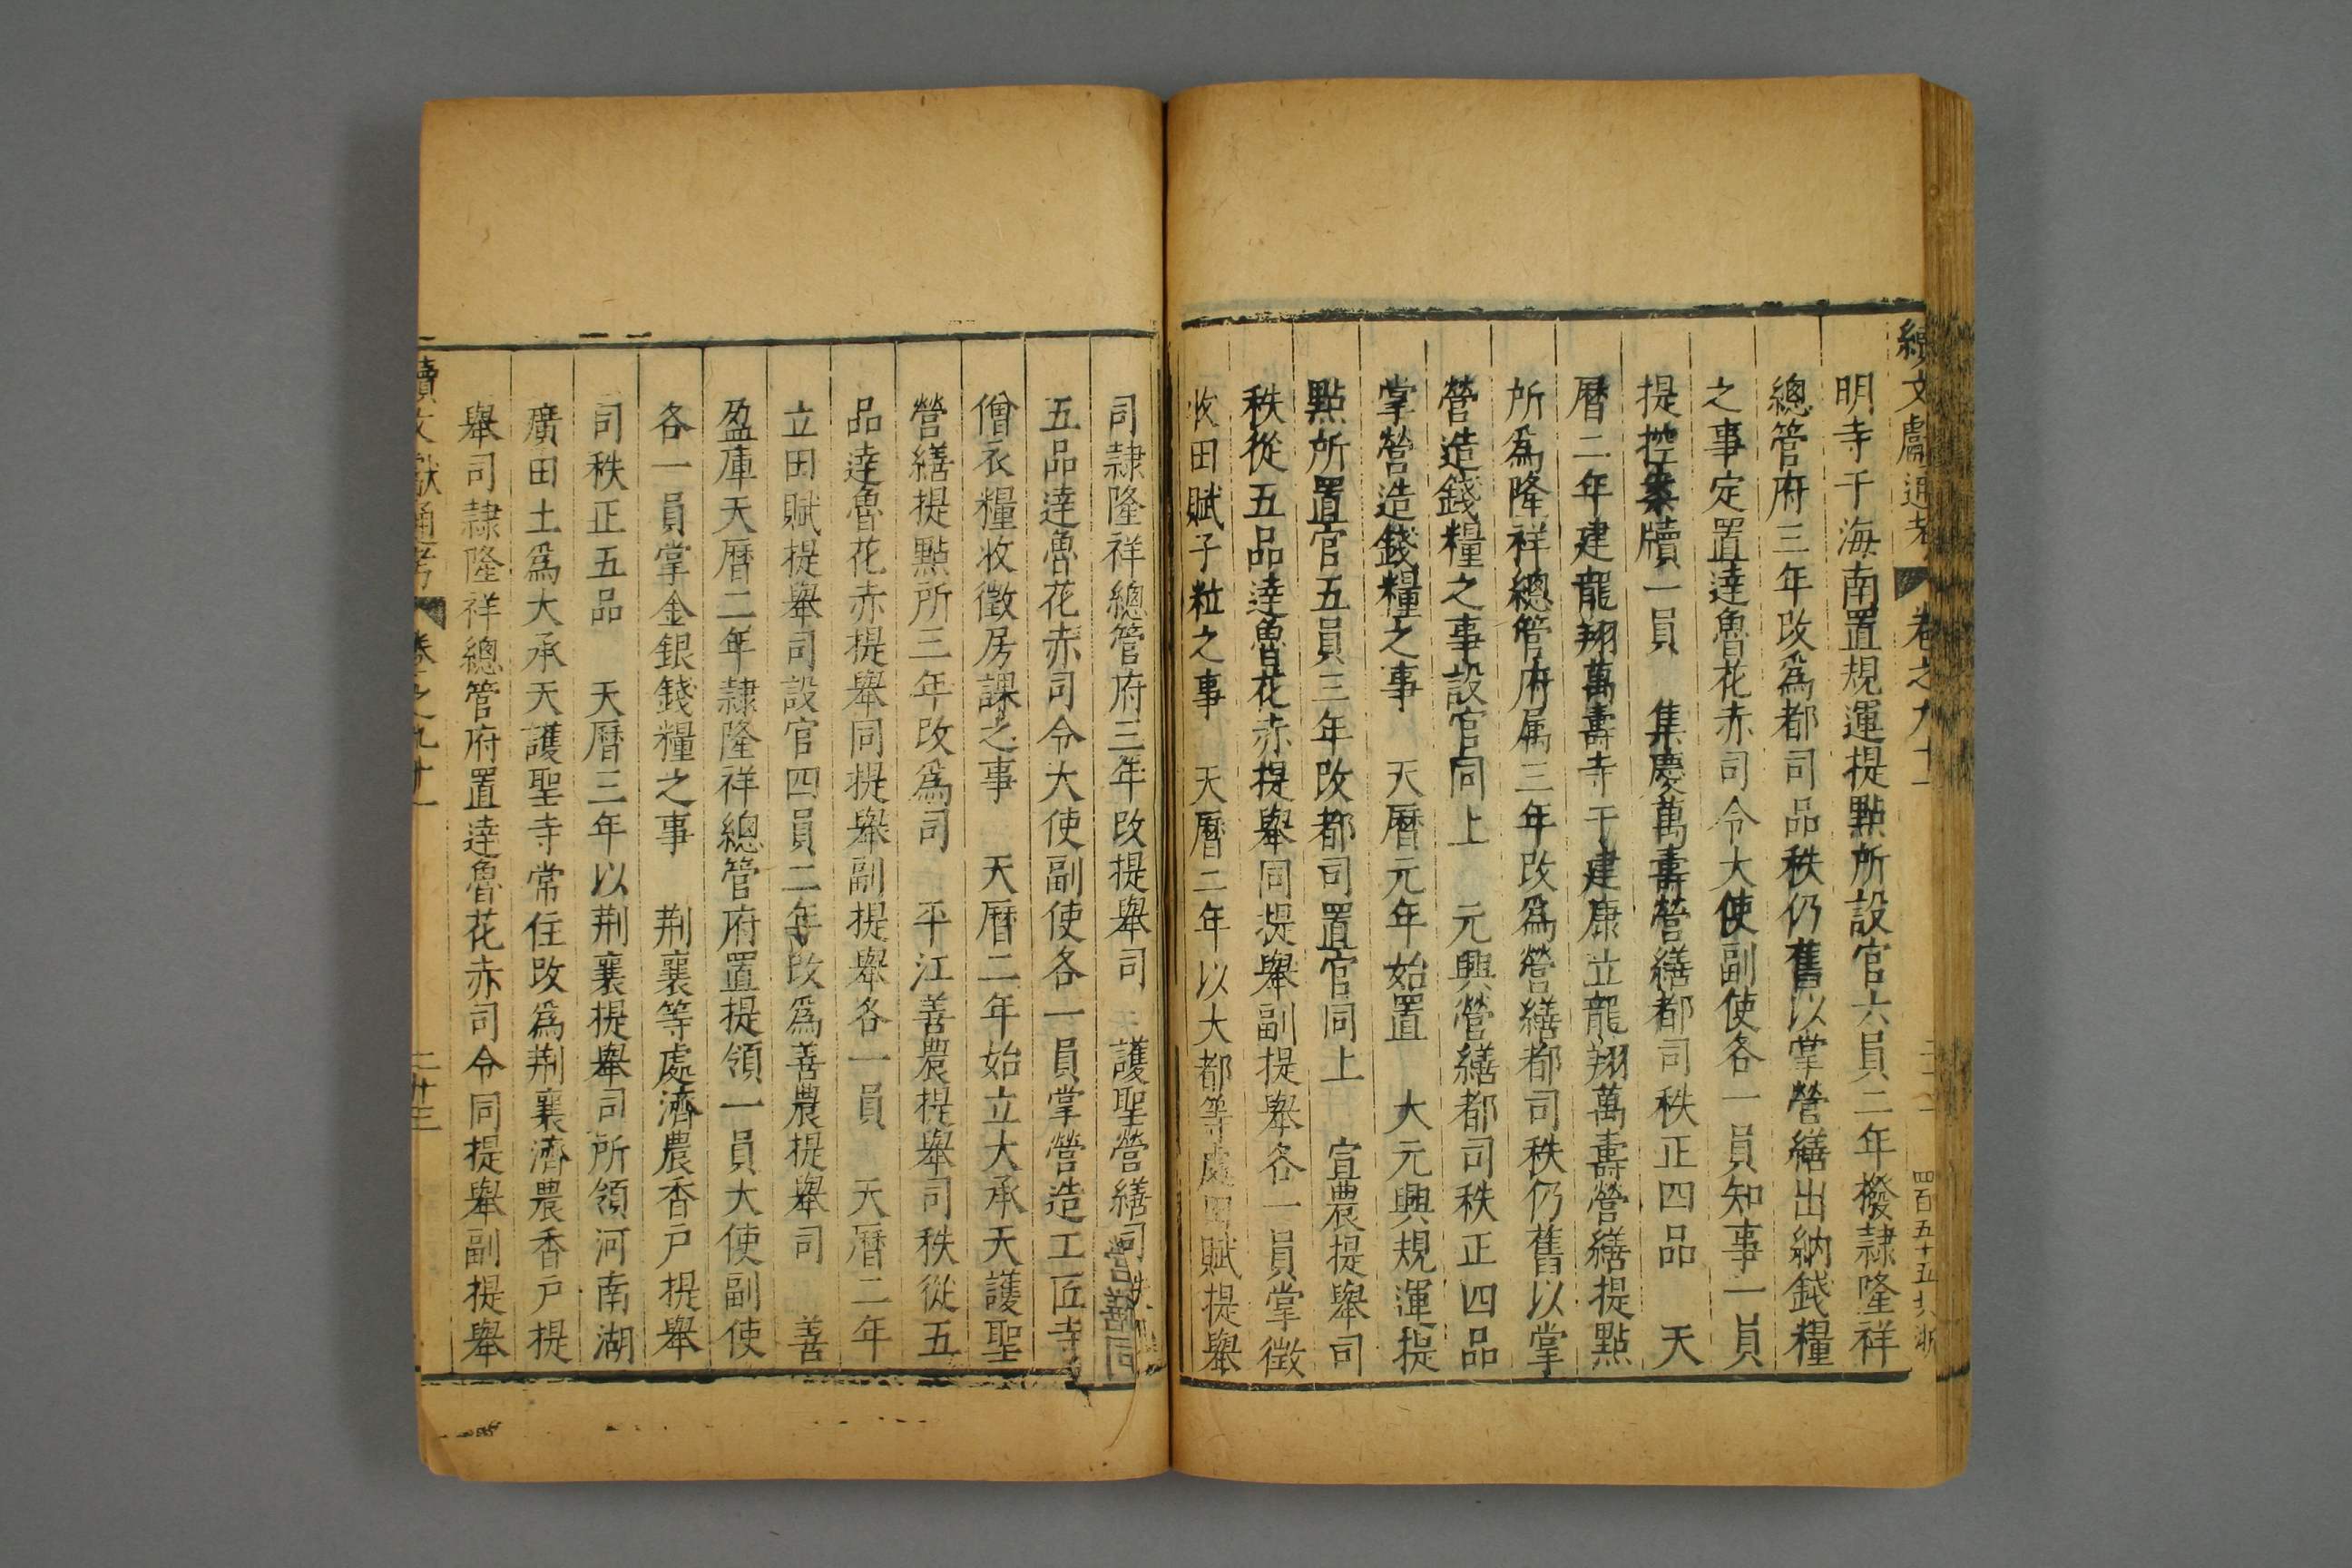 續文獻通考 卷之九十一
明寺于海南置規運提點所設官六員二年撥隷隆祥
總管府三年改爲都司品秩仍舊以掌營繕出納錢糧
之事定置達魯花赤司令大使副使各一員知事一員
提控案牘一員 集慶萬壽營繕都司秩正四品 天
曆二年建龍翔萬壽寺于建康立龍翔萬壽營繕提點
所爲隆祥總管府属三年改爲營繕都司秩仍舊以掌
營造錢糧之事設官同上 元興營繕都司秩正四品
掌營造錢糧之事 天曆元年始置 大元興規運提
點所置官五員三年改都司置官同上 宣農提舉司
秩從五品達魯花赤提舉同提舉副提舉各一員掌徵
收田賦子粒之事 天曆二年以大都等處田賦提舉
司隷隆祥總管府三年改提舉司 護聖營繕司秩
五品達魯花赤司令大使副使各一員掌營造工匠寺
僧衣糧收徵房課之事 天曆二年始立大承天護聖
營繕提點所三年改爲司 平江善農提舉司秩從五
品達魯花赤提舉同提舉副提舉各一員 天曆二年
立田賦提舉司設官四員二年改爲善農提舉司 善
盈庫天曆二年隷隆祥總管府置提領一員大使副使
各一員掌金銀錢糧之事 荆襄等處濟農香戶提舉
司秩正五品 天曆三年以荆襄提舉司所領河南湖
廣田土爲大承天護聖寺常住改爲荆襄濟農香戶提
舉司隷隆祥總管府置達魯花赤司令同提舉副提舉
續文獻通考 卷之九十一 二十三